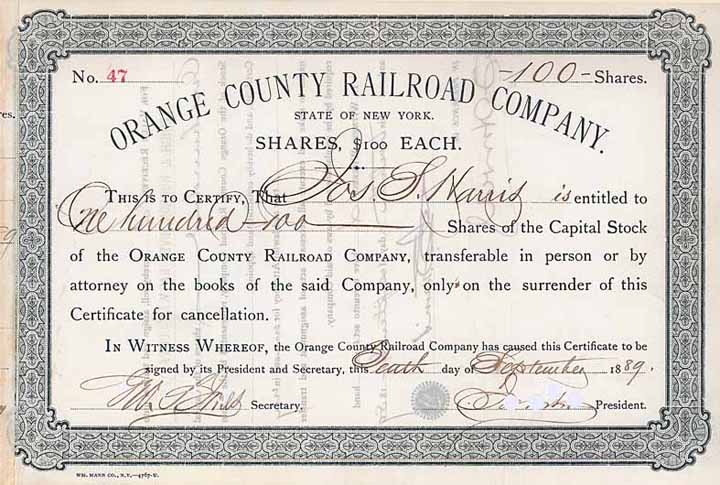 No. 47 -100- Shares.
ORANGE COUNTY RAILROAD COMPANY.
STATE OF NEW YORK.
SHARES, $100 EACH.
THIS IS TO CERTIFY, That Jos. S. Harris is entitled to
One hundred -100 Shares of the Capital Stock
of the ORANGE COUNTY RAILROAD COMPANY, transferable in person or by
attorney on the books of the said Company, only on the surrender of this
Certificate for cancellation.
IN WITNESS WHEREOF, the Orange County Railroad Company has caused this Certificate to be
signed by its President and Secretary, this Tenth day of September 1889.
Secretary. President.
WM. MANN CO., N.Y.—4767-U.
res.